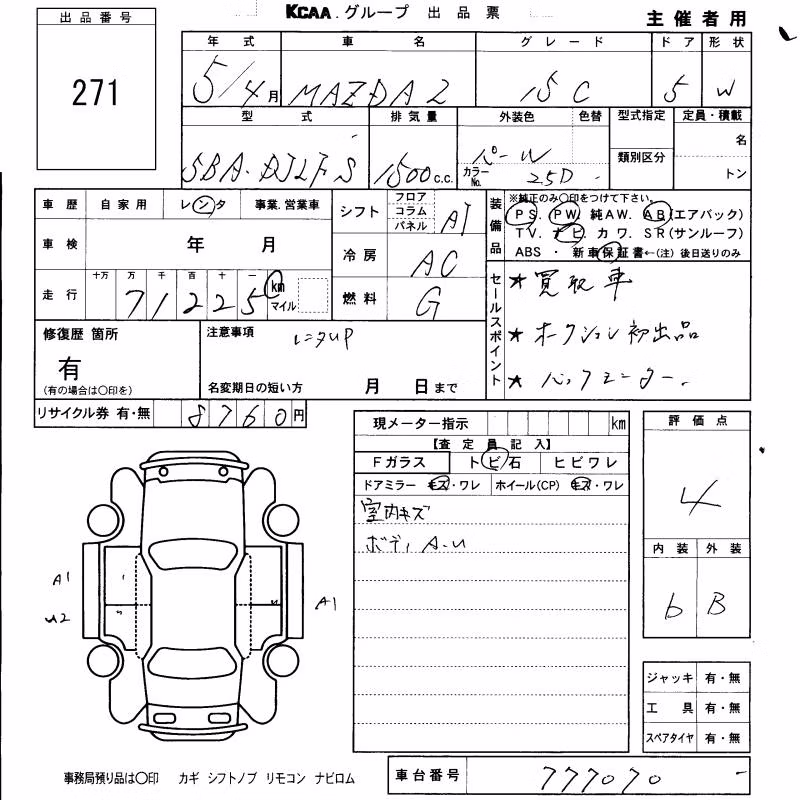 KCAA グループ 出品票
主催者用
出品番号
271
年式 車名 グレード ドア 形状
5/4月 MAZDA2 15C 5 W
型式 排気量 外装色 色替 型式指定 定員・積載
名
類別区分
トン
5BA-DJLFS 1500c.c. パーW カラーNo. 25D
車歴 自家用 レンタ 事業.営業車
車検 年 月
走行 十万 万 千 百 十 一
71225 km マイル
シフト フロア コラム パネル AT
冷房 AC
燃料 G
装備品 ※純正のみ〇印をつけて下さい。
PS. PW. 純AW. AB(エアバック)
TV. ナビ. カワ. SR(サンルーフ)
ABS ・ 新車保証書←(注)後日送りのみ
セールスポイント
★ 買取車
★ オークション初出品
★ バックモニター.
修復歴 箇所
有
(有の場合は〇印を)
注意事項 レンタUP
名変期日の短い方 月 日まで
リサイクル券 有・無 8760円
現メーター指示 km
【査定員記入】
Fガラス トビ石 ヒビワレ
ドアミラー キズ・ワレ ホイール(CP) キズ・ワレ
室内キズ
ボディ A.U
評価点
4
内装 外装
b B
A1
U2
A1
ジャッキ 有・無
工具 有・無
スペアタイヤ 有・無
事務局預り品は〇印 カギ シフトノブ リモコン ナビロム
車台番号 777070